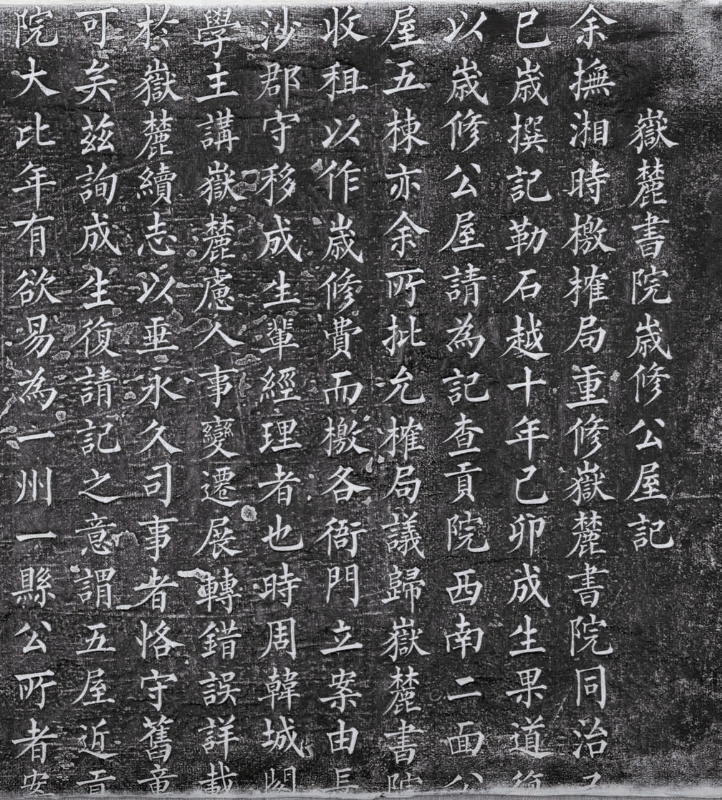 嶽麓書院歲修公屋記
余撫湘時檄搉局重修嶽麓書院同治
巳歲撰記勒石越十年己卯成生果道復
以歲修公屋請為記查貢院西南二面公
屋五棟亦余所批允搉局議歸嶽麓書院
收租以作歲修費而檄各衙門立案由長
沙郡守移成生輩經理者也時周韓城閣
學主講嶽麓慮人事變遷展轉錯誤詳載
於嶽麓續志以垂永久司事者恪守舊章
可矣茲詢成生復請記之意謂五屋近貢
院大比年有欲易為一州一縣公所者安